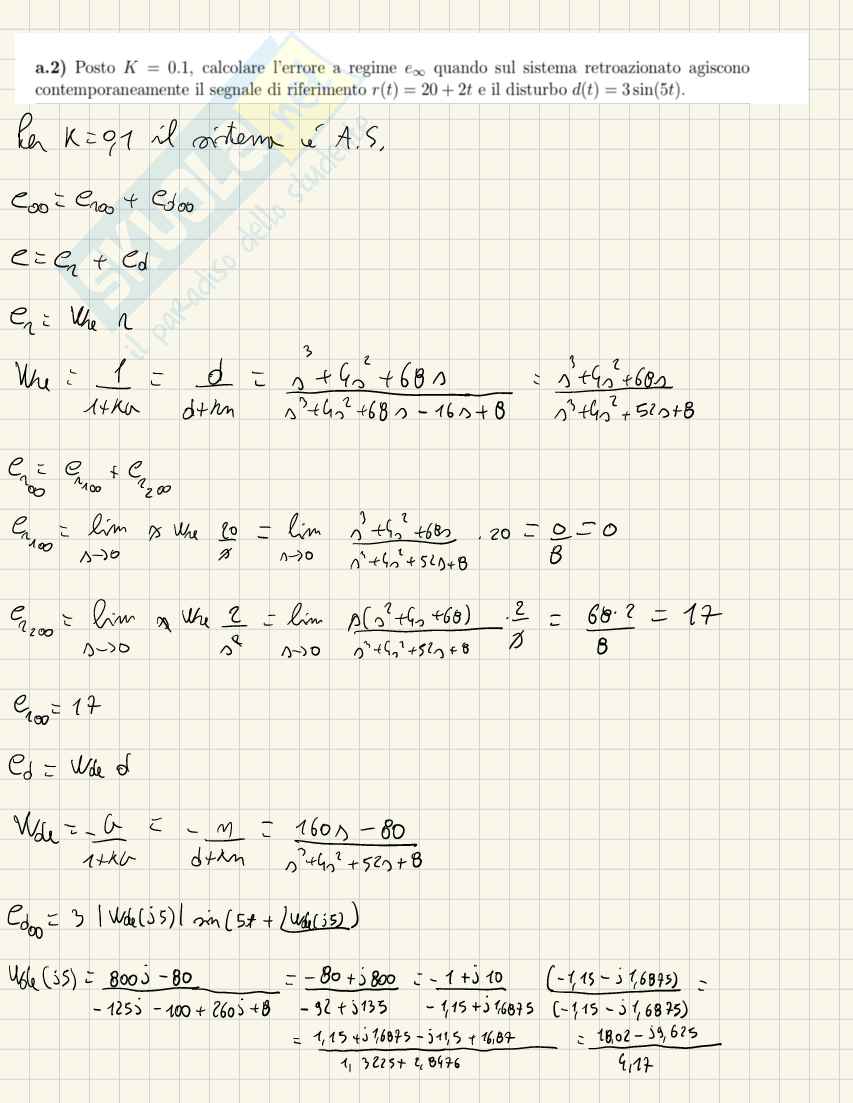 a.2) Posto K = 0.1, calcolare l'errore a regime e∞ quando sul sistema retroazionato agiscono
contemporaneamente il segnale di riferimento r(t) = 20 + 2t e il disturbo d(t) = 3 sin(5t).
Per K=0,1 il sistema è A.S.
e∞ = er∞ + ed∞
e = er + ed
er = Wre r
Wre = 1/(1+KG) = d/(d+kn) = (s³+4s²+68s)/(s³+4s²+68s-16s+8) = (s³+4s²+68s)/(s³+4s²+52s+8)
er∞ = er1∞ + er2∞
er1∞ = lim s→0 s Wre 20/s = lim s→0 (s³+4s²+68s)/(s³+4s²+52s+8) · 20 = 0/8 = 0
er2∞ = lim s→0 s Wre 2/s² = lim s→0 s(s²+4s+68)/(s³+4s²+52s+8) · 2/s = 68·2/8 = 17
er∞ = 17
ed = Wde d
Wde = -G/(1+KG) = -n/(d+kn) = (160s-80)/(s³+4s²+52s+8)
ed∞ = 3 |Wde(j5)| sin(5t + ∠Wde(j5))
Wde(j5) = (800j-80)/(-125j-100+260j+8) = (-80+j800)/(-92+j135) = (-1+j10)/(-1,15+j1,6875) (-1,15-j1,6875)/(-1,15-j1,6875) =
= (1,15+j1,6875-j11,5+16,87)/(1,3225+2,8476) = (18,02-j9,625)/4,17
SKUOLA.net
il paradiso dello studente